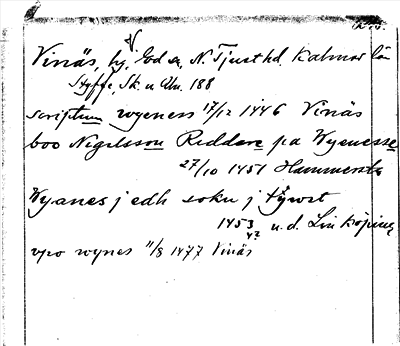 Vinäs, by, Ed sn, N. Tjust hd, Kalmar län
Styffe, Sk. u. Un. 188
scriptum wyeness 17/12 1446 Vinäs
boo Nigelsson Riddare pa Wyenesse
27/10 1451 Hammersta
Wyanes j edh sokn j tywst
1453 u. d. Linköping
42
vpo wynes 11/8 1477 Vinäs